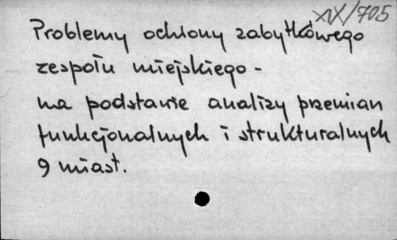 XIX/705
Problemy ochrony zabytkowego
zespołu miejskiego -
na podstawie analizy przemian
funkcjonalnych i strukturalnych
9 miast.